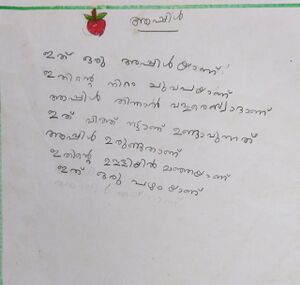 ആപ്പിൾ
ഇത് ഒരു ആപ്പിൾ യാണ്
ഇതിന്റെ നിറം ചുവപ്പയാണ്
ആപ്പിൾ തിന്നാൻ വളരെസ്വാദാണ്
ഇത് വിത്ത് നട്ടാണ് ഉണ്ടാവുന്നത്
ആപ്പിൾ ഉരുണ്ടതാണ്
ഇതിന്റെ ഉള്ളിൽ മഞ്ഞയാണ്
ഇത് ഒരു പഴം യാണ്